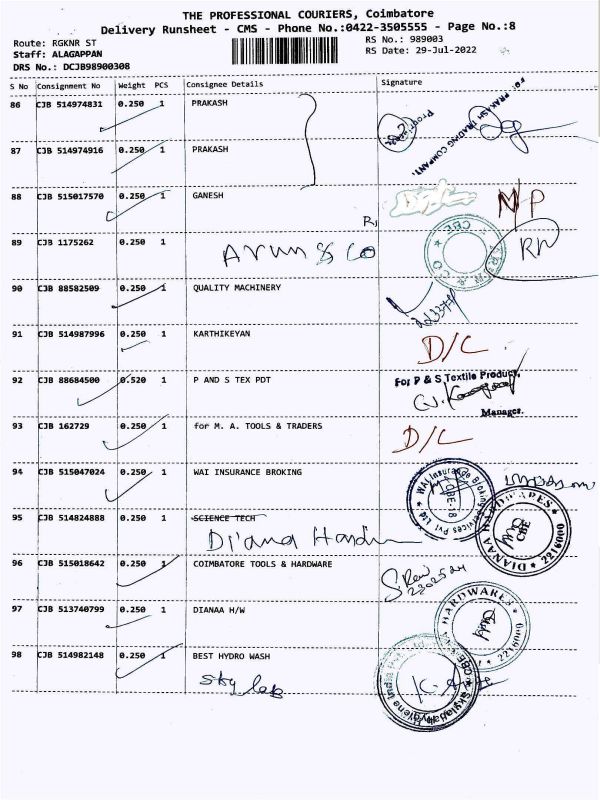 THE PROFESSIONAL COURIERS, Coimbatore
Delivery Runsheet - CMS - Phone No.:0422-3505555 - Page No.:8
Route: RGKNR ST
RS No.: 989003
Staff: ALAGAPPAN
RS Date: 29-Jul-2022
DRS No.: DCJB98900308
S No Consignment No Weight PCS Consignee Details Signature
86 CJB 514974831 0.250 1 PRAKASH
For PRAKASH TRADING COMPANY.
Proprietor
87 CJB 514974916 0.250 1 PRAKASH
88 CJB 515017570 0.250 1 GANESH
N/P
CBE
89 CJB 1175262 0.250 1
Arun & Co
RN
90 CJB 88582509 0.250 1 QUALITY MACHINERY
91 CJB 514987996 0.250 1 KARTHIKEYAN
D/C
92 CJB 88684500 0.520 1 P AND S TEX PDT
For P & S Textile Product,
Manager.
93 CJB 162729 0.250 1 for M. A. TOOLS & TRADERS
D/C
94 CJB 515047024 0.250 1 WAI INSURANCE BROKING
WAI Insurance Broking Services Pvt Ltd
CBE-18
95 CJB 514824888 0.250 1 SCIENCE TECH
Diana Hardw
DIANAA HARDWARES 2216000
CBE
96 CJB 515018642 0.250 1 COIMBATORE TOOLS & HARDWARE
2302524
97 CJB 513740799 0.250 1 DIANAA H/W
HARDWARES 2216000
98 CJB 514982148 0.250 1 BEST HYDRO WASH
Sky lab
CBE